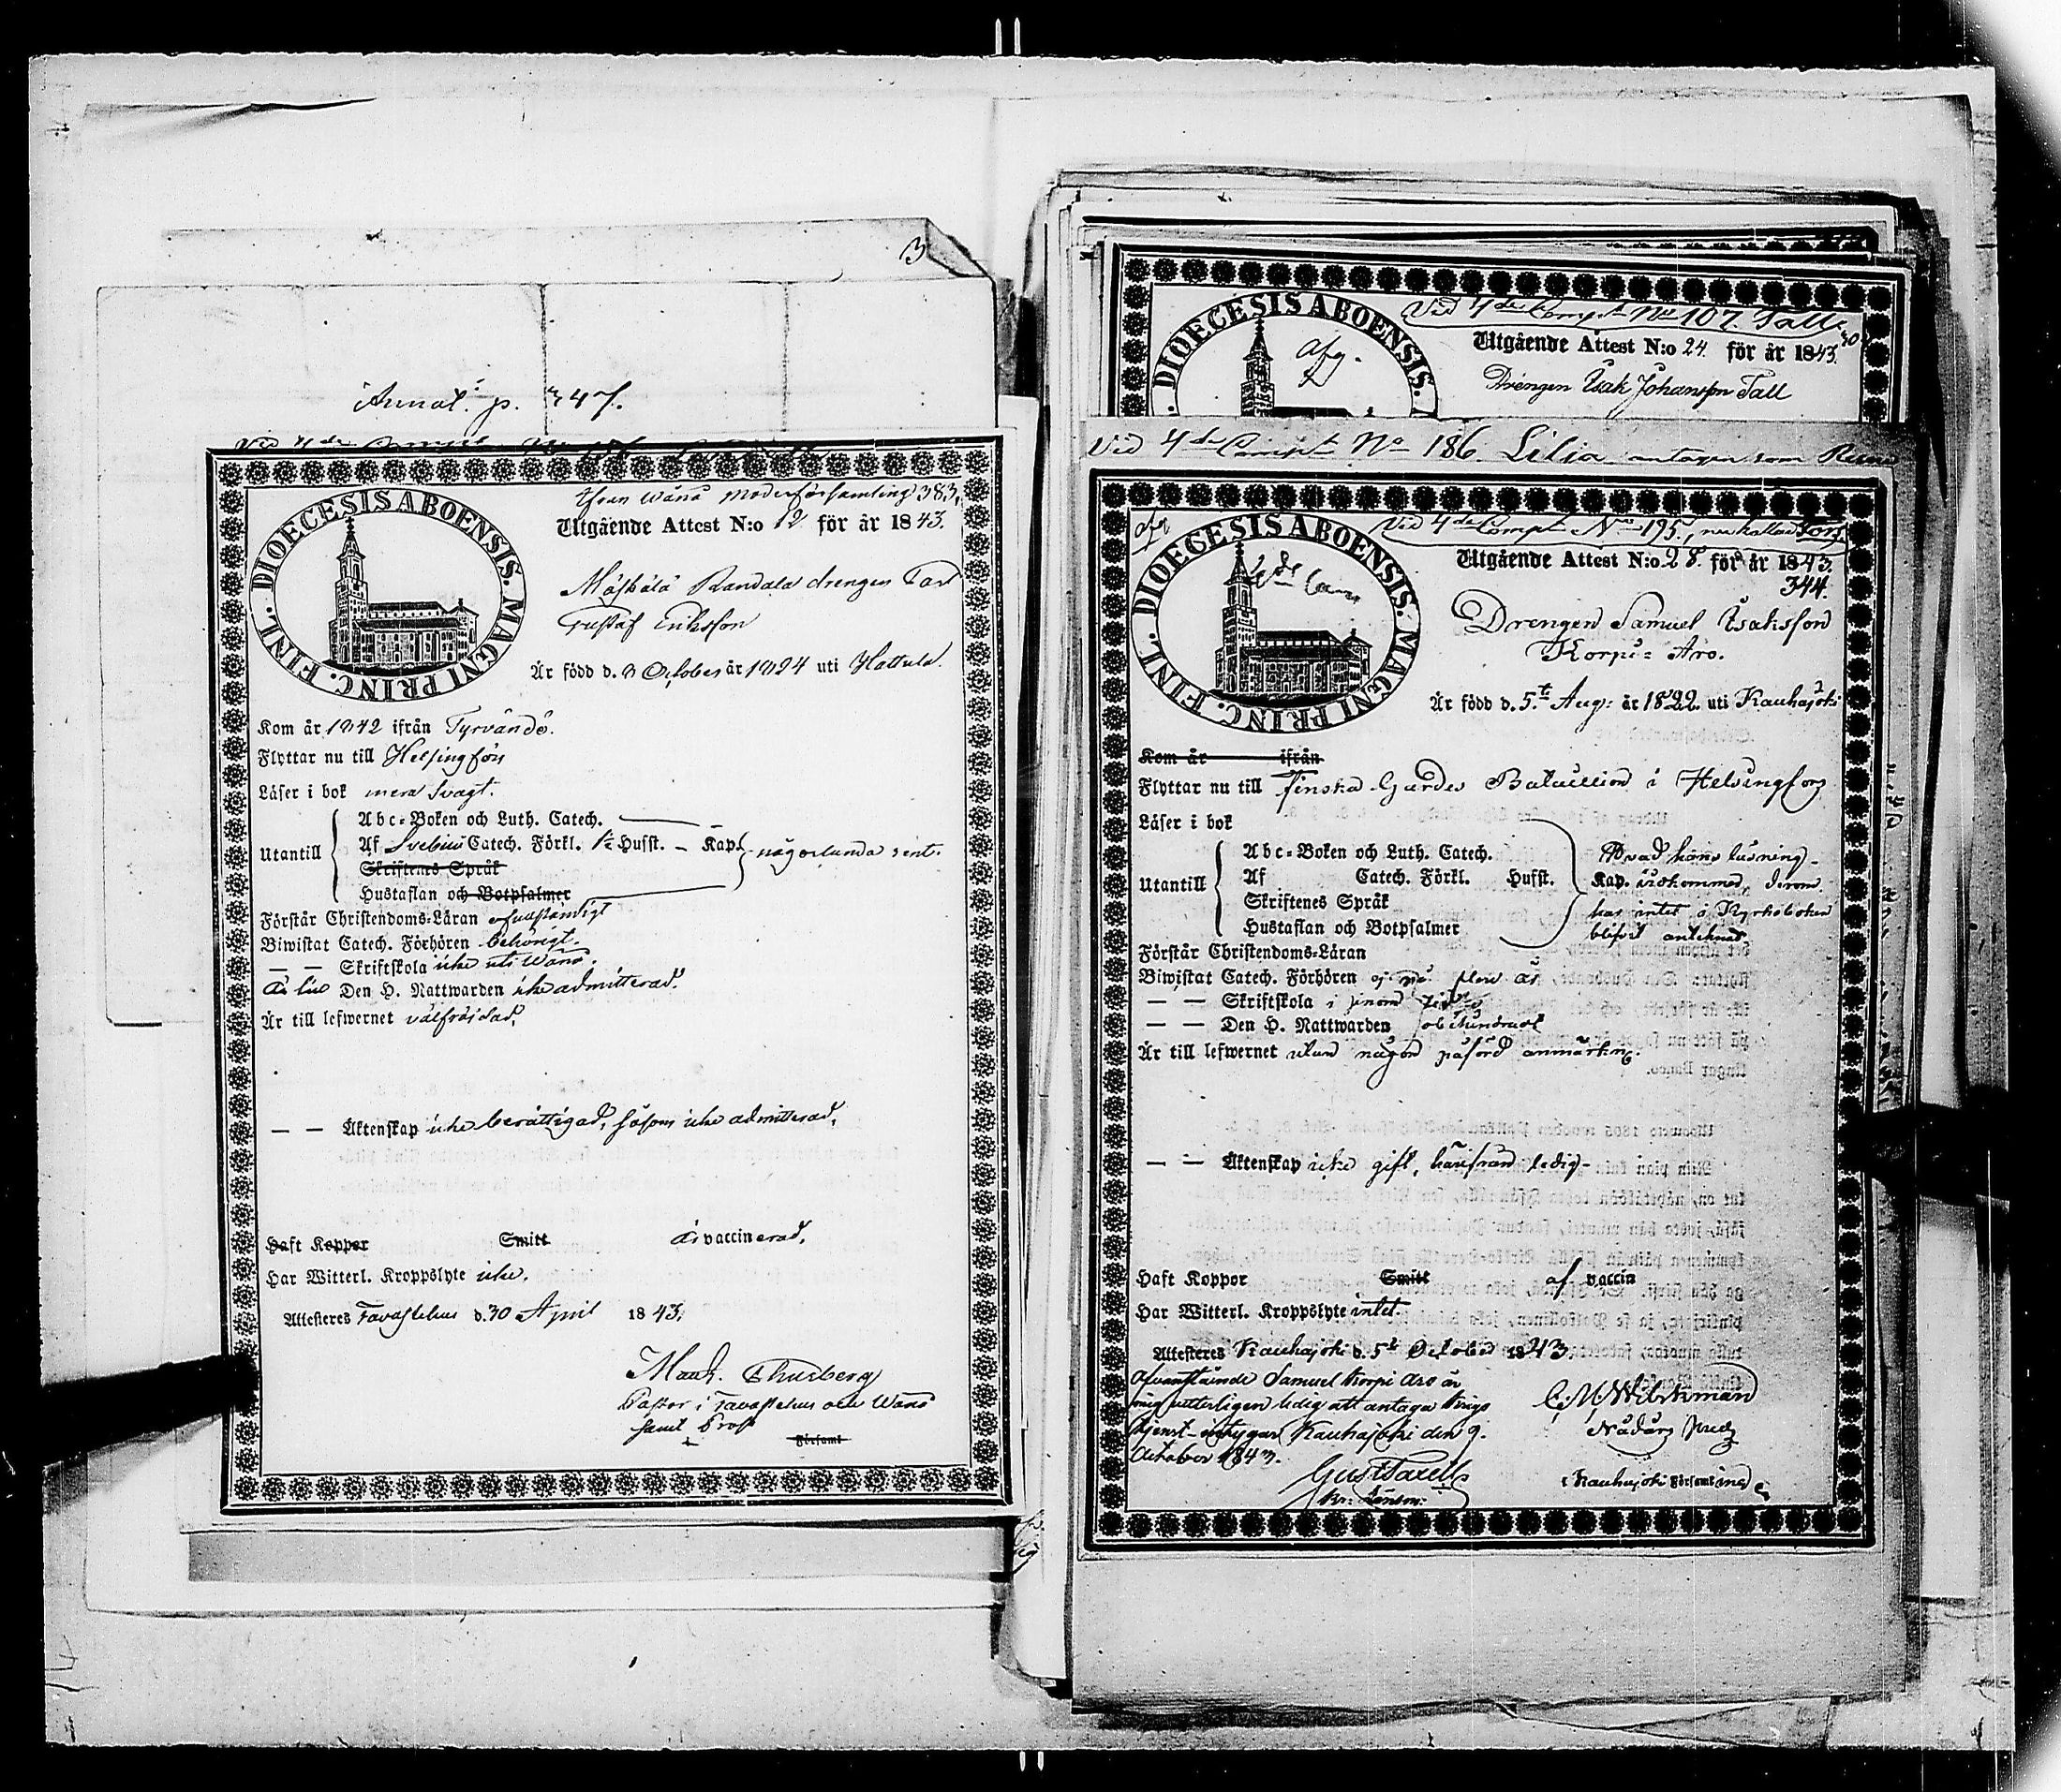 3
Annot. p. 347.
Från Wånå moderförsamling 383,
DIOECESIS ABOENSIS. MAGNI PRINC. FINL.
Utgående Attest N:o 12 för år 1843.
Randala drengen Carl
Gustaf Eriksson
Är född d. 8 October år 1824 uti Hattula.
Kom år 1842 ifrån Tyrvändö.
Flyttar nu till Helsingfors
Läser i bok mera svagt.
Utantill
Abc-Boken och Luth. Catech.
Af Svebilii Catech. Förkl. Hufst. – Kap. någorlunda rent.
Skriftenes Språk
Hustaflan och Botpsalmer
Förstår Christendoms-Läran ofullständigt
Biwistat Catech. Förhören behörigt.
— — Skriftskola icke uti Wånå.
Den H. Nattwarden icke admitterad.
Är till lefwernet välfräjdad,
— — Äktenskap icke berättigad, såsom icke admitterad.
Haft Koppor Smitt är vaccinerad.
Har Witterl. Kroppslyte icke.
Attesteres Tavastehus d. 30 April 1843.
Pastor i Tavastehus och Wånå
samt Prost
Församl
Vid 4de Comp:t No 107. Tall
DIOECESIS ABOENSIS.
afg.
Utgående Attest N:o 24. för år 1843.
Drengen Isak Johansson Tall
Vid 4de Comp:t No 186. Lilja antagen som
afg
Vid 4de Comp:t No 195, nu kallad
DIOECESIS ABOENSIS. MAGNI PRINC. FINL.
Utgående Attest N:o 28. för år 1843.
344.
Drengen Samuel Isaksson
Korpi-Aro.
Är född d. 5te Aug: år 1822 uti Kauhajoki
Kom år ifrån
Flyttar nu till Finska Gardes Bataillion i Helsingfors
Läser i bok
Utantill
Abc-Boken och Luth. Catech.
Af Catech. Förkl. Hufst. Kap.
Skriftenes Språk
Hustaflan och Botpsalmer
Hvad hans läsning
vidkommer, derom
har intet i Kyrkoboken
blifvit antecknat
Förstår Christendoms-Läran
Biwistat Catech. Förhören ej på flere år
— — Skriftskola i sinom tid
— — Den H. Nattwarden obehindrad
Är till lefwernet utan någon påförd anmärkn.
— — Äktenskap icke gift, härifrån ledig –
Haft Koppor Smitt af vaccin
Har Witterl. Kroppslyte intet
Attesteres Kauhajoki d. 5te October 1843.
Ofvanstående Samuel Korpi Aro är
mig vetterligen ledig att antaga Krigs
tjenst – intygar Kauhajoki den 9.
October 1843.
Kr: Länsm:
Nådårs Pred
i Kauhajoki Församling